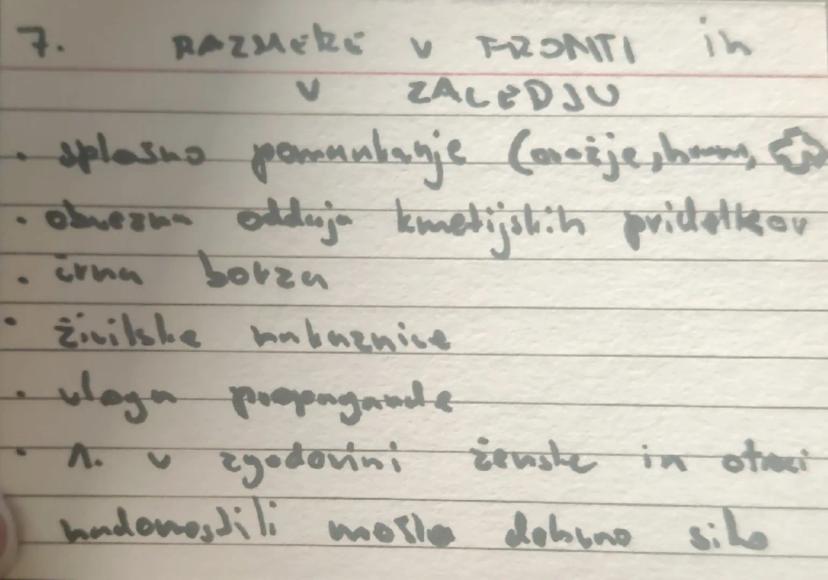 7. RAZMERE V FRONTI in
V ZALEDJU
• splošno pomankanje (orožje, hrana,
• obvezna oddaja kmetijskih pridelkov
• črna borza
• živilske nakaznice
• vloga propagande
• 1. v zgodovini ženske in otroci
nadomestili moško delovno silo